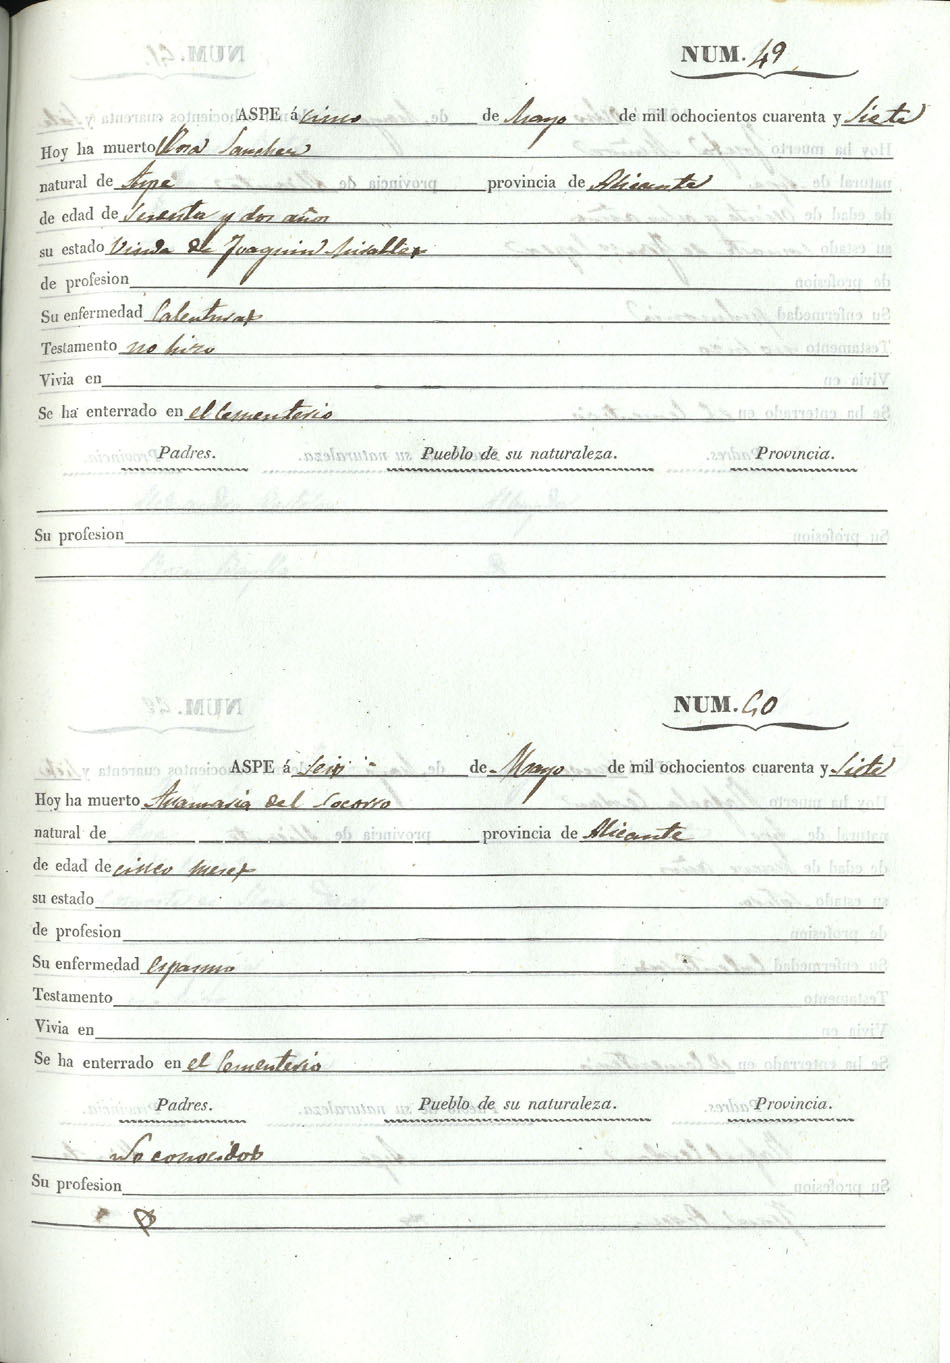 NUM. 49
ASPE á cinco de Mayo de mil ochocientos cuarenta y Siete
Hoy ha muerto Rosa Sanchez
natural de Aspe provincia de Alicante
de edad de setenta y dos años
su estado Viuda de Joaquin
de profesion
Su enfermedad Calenturas
Testamento no hizo
Vivia en
Se ha enterrado en el Cementerio
Padres. Pueblo de su naturaleza. Provincia.
Su profesion
NUM. 50
ASPE á Seis de Mayo de mil ochocientos cuarenta y Siete
Hoy ha muerto Anamaria del Socorro
natural de provincia de Alicante
de edad de cinco meses
su estado
de profesion
Su enfermedad espasmo
Testamento
Vivia en
Se ha enterrado en el Cementerio
Padres. Pueblo de su naturaleza. Provincia.
No conocidos
Su profesion